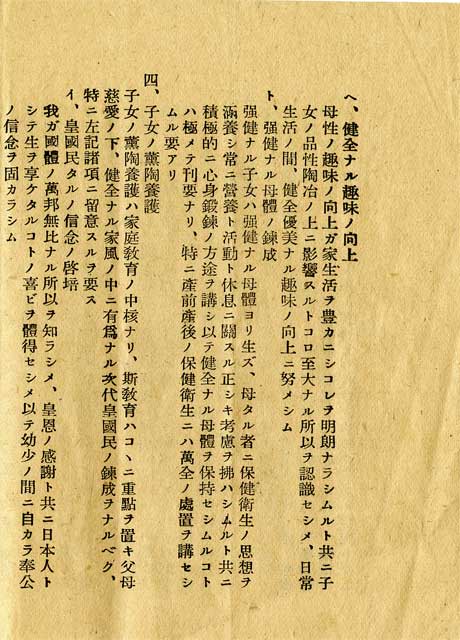 ヘ、健全ナル趣味ノ向上
母性ノ趣味ノ向上ガ家生活ヲ豊カニシコレヲ明朗ナラシムルト共ニ子
女ノ品性陶冶ノ上ニ影響スルトコロ至大ナル所以ヲ認識セシメ、日常
生活ノ間、健全優美ナル趣味ノ向上ニ努メシム
ト、强健ナル母體ノ錬成
强健ナル子女ハ强健ナル母體ヨリ生ズ、母タル者ニ保健衛生ノ思想ヲ
涵養シ常ニ營養ト活動ト休息ニ關スル正シキ考慮ヲ拂ハシムルト共ニ
積極的ニ心身鍛錬ノ方途ヲ講シ以テ健全ナル母體ヲ保持セシムルコト
ハ極メテ刊要ナリ、特ニ産前産後ノ保健衛生ニハ萬全ノ處置ヲ講セシ
ムル要アリ
四、子女ノ薫陶養護
子女ノ薫陶養護ハ家庭敎育ノ中核ナリ、斯敎育ハコヽニ重點ヲ置キ父母
慈愛ノ下、健全ナル家風ノ中ニ有爲ナル次代皇國民ノ錬成ヲナルベグ、
特ニ左記諸項ニ留意スルヲ要ス
イ、皇國民タルノ信念ノ啓培
我ガ國體ノ萬邦無比ナル所以ヲ知ラシメ、皇恩ノ感謝ト共ニ日本人ト
シテ生ヲ享ケタルコトノ喜ビヲ體得セシメ以テ幼少ノ間ニ自カラ奉公
ノ信念ヲ固カラシム